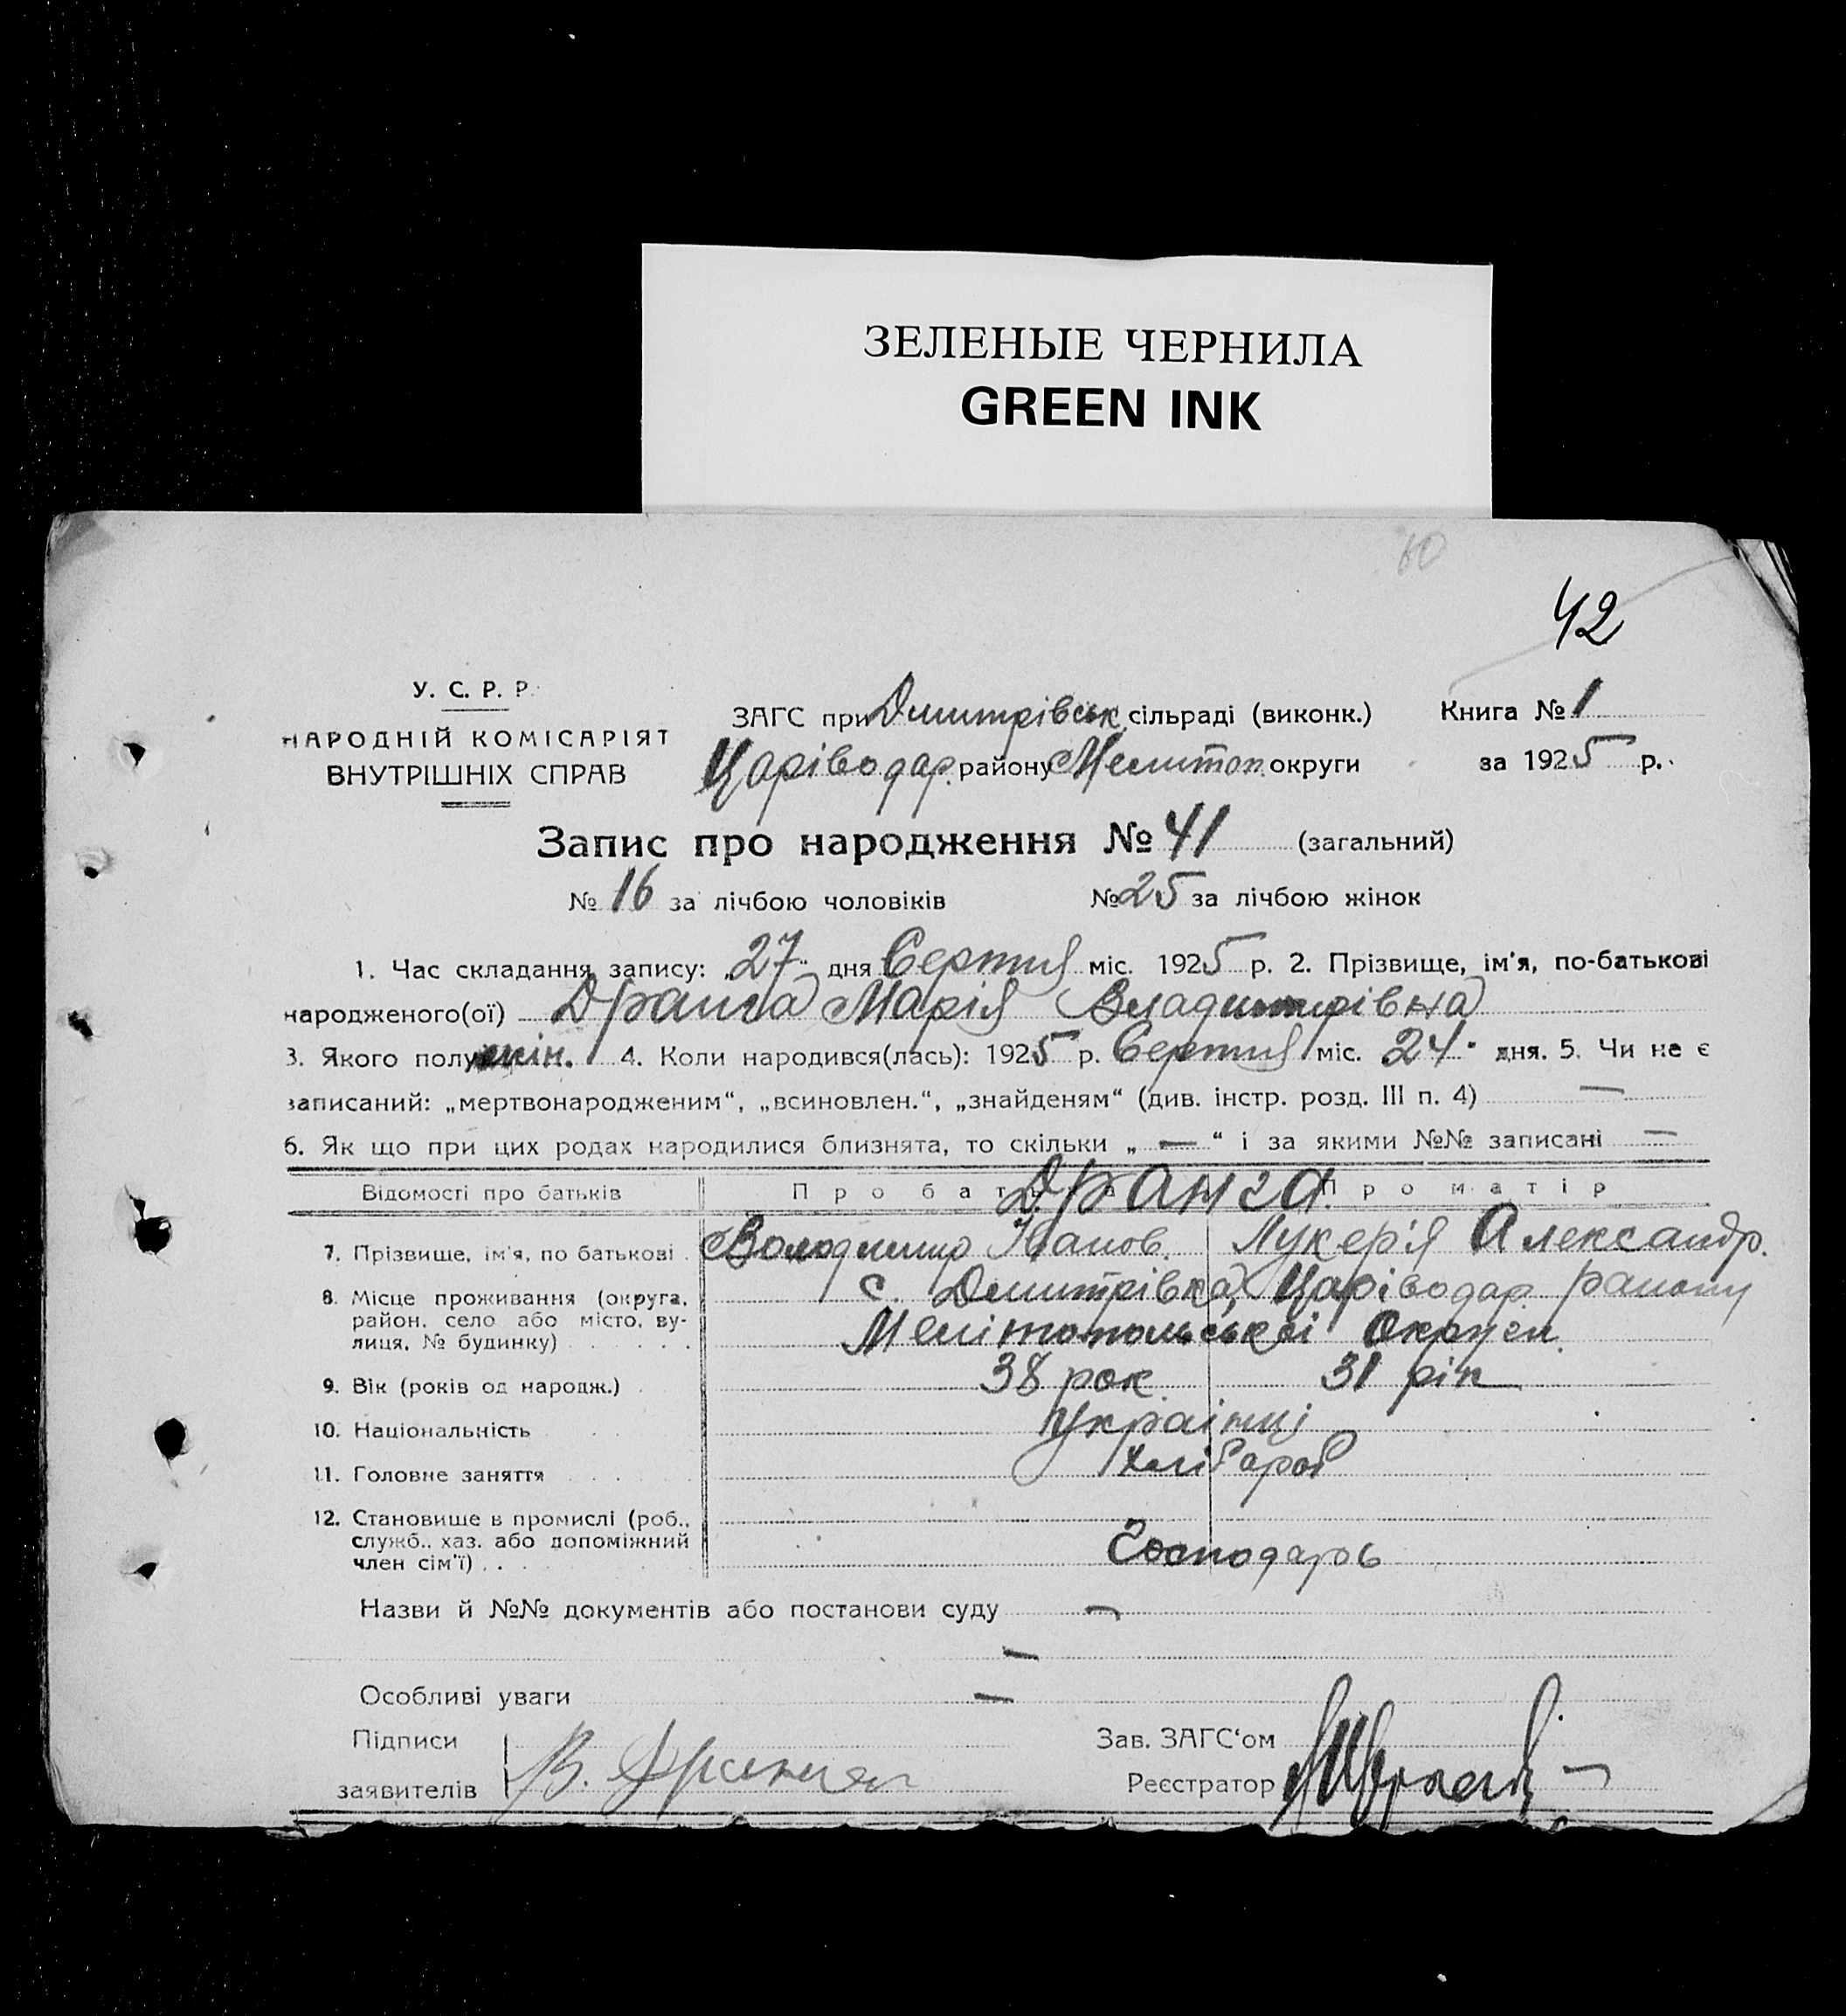 ЗЕЛЕНЫЕ ЧЕРНИЛА
GREEN INK
60
42
У. С. Р. Р.
НАРОДНІЙ КОМІСАРІЯТ
ВНУТРІШНІХ СПРАВ
ЗАГС при Дмитрівськ. сільраді (виконк.)
Книга № 1
Царіводар. району Мелитоп. округи
за 1925 р.
Запис про народження № 41 (загальний)
№ 16 за лічбою чоловіків № 25 за лічбою жінок
1. Час складання запису: „27“ дня Серпня міс. 1925 р. 2. Прізвище, ім'я, по-батькові
народженого(ої) Дранга Марія Владимирівна
3. Якого полу жін. 4. Коли народився(лась): 1925 р. Серпня міс. 24 дня. 5. Чи не є
записаний: „мертвонародженим“, „всиновлен.“, „знайденям“ (див. інстр. розд. III п. 4) —
6. Як що при цих родах народилися близнята, то скільки „ — “ і за якими №№ записані —
Відомості про батьків Про бать Дранга. Про матір
7. Прізвище, ім'я, по батькові Володимир Іванов. Лукер'я Александр.
8. Місце проживання (округа, с. Дмитрівка, Царіводар. району
район, село або місто, ву-
лиця, № будинку) Мелітопольської Округи.
9. Вік (років од народж.) 38 рок 31 рік
10. Національність Українці
11. Головне заняття Хлібороб
12. Становище в промислі (роб.,
служб., хаз. або допоміжний
член сім'ї) Господарь
Назви й №№ документів або постанови суду —
—
Особливі уваги —
Підписи
заявителів В. Дранга
Зав. ЗАГС'ом
Реєстратор